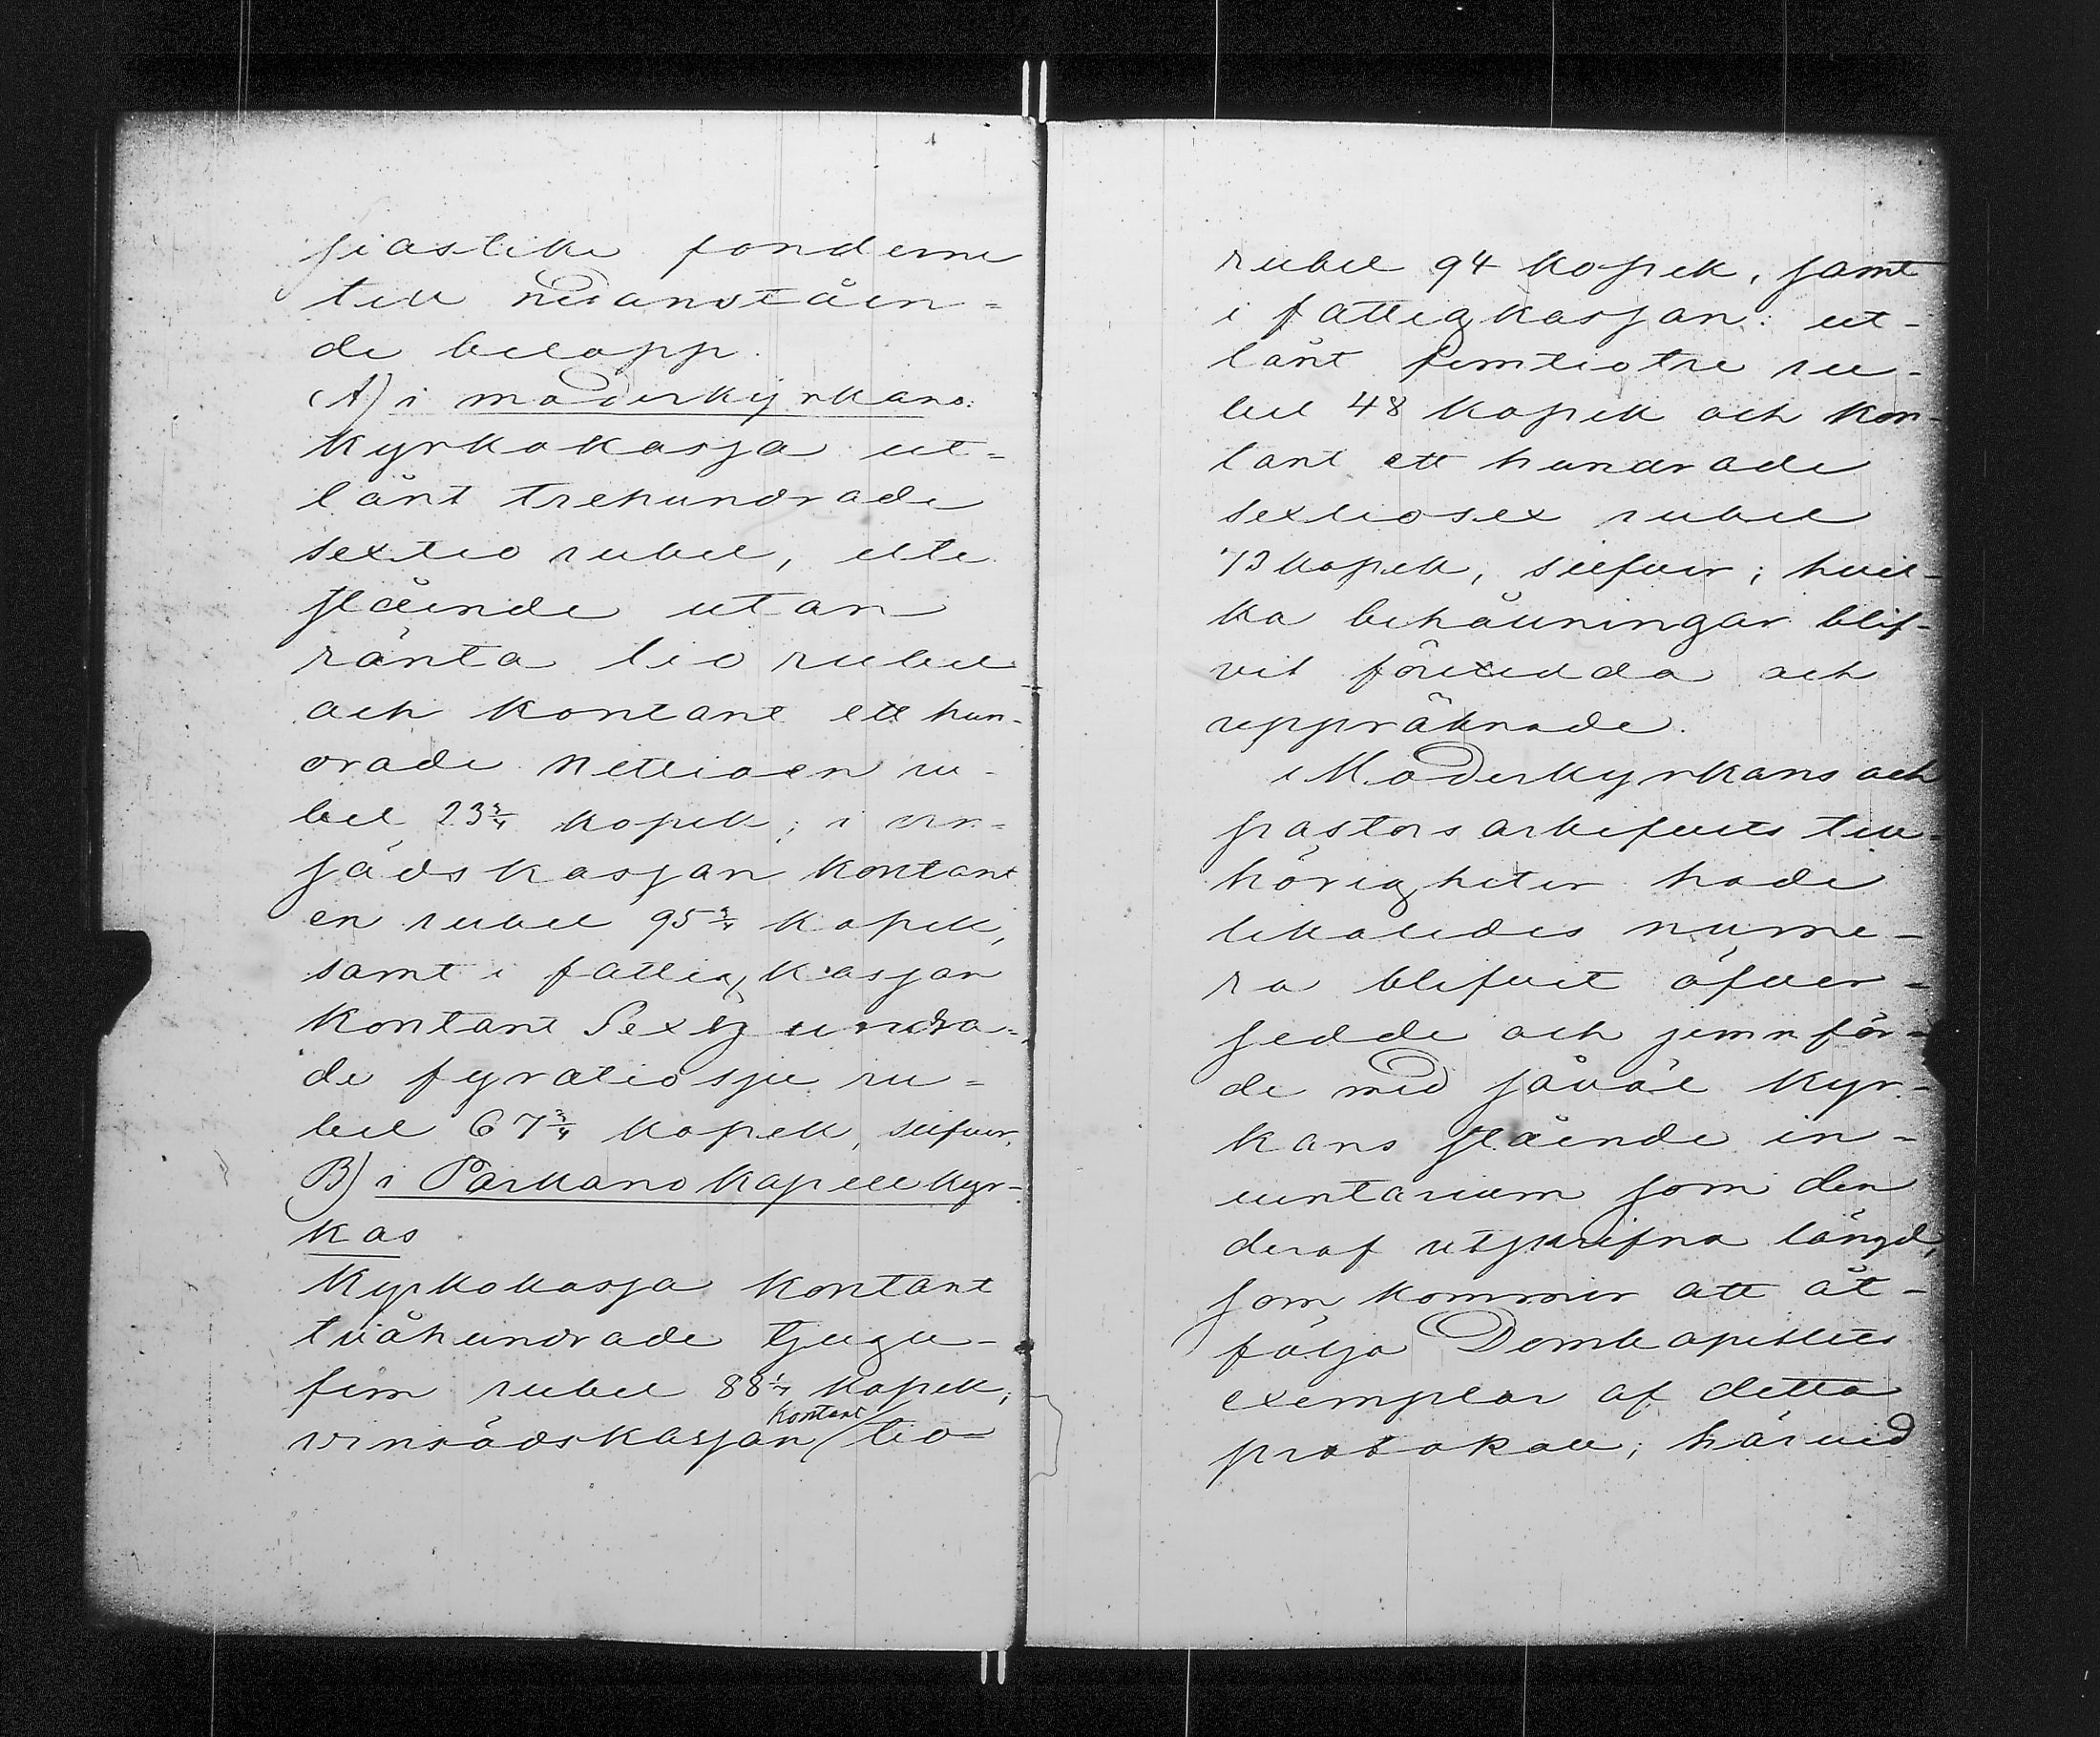 siastike fonderne
till nedanståen=
de belopp.
A) i moderkyrkans:
Kyrkokassa ut=
lånt trehundrade
sextio rubel, ute
stående utan
ränta tio rubel
och kontant ett hun-
drade nettioen ru-
bel 23 3/4 kopek; i vin=
sädskassan kontant
en rubel 95 3/4 kopek,
samt i fattigkassan
kontant Sexhundra=
de fyratiosju ru=
bel 67 3/4 kopek, silfver,
B) i Parkano kapellkyr-
kas
Kyrkokassa kontant
tvåhundrade tjugu-
fem rubel 88 1/4 kopek;
vinsädskassan kontant tio
rubel 94 kopek, samt
i fattigkassan: ut-
lånt femtiotre ru-
bel 48 kopek och kon-
tant ett hundrade
sextiosex rubel
73 kopek, silfver; hvil-
ka behållningar blif-
vit företedda och
uppräknade.
Moderkyrkans och
pastorsarkifvets till-
hörigheter hade
likaledes nume-
ra blifvit öfver-
sedde och jemnför-
de med såväl kyr-
kans stående in-
ventarium som den
deraf utskrifna längd,
som kommer att åt-
följa Domkapitlets
exemplar af detta
protokoll; härvid